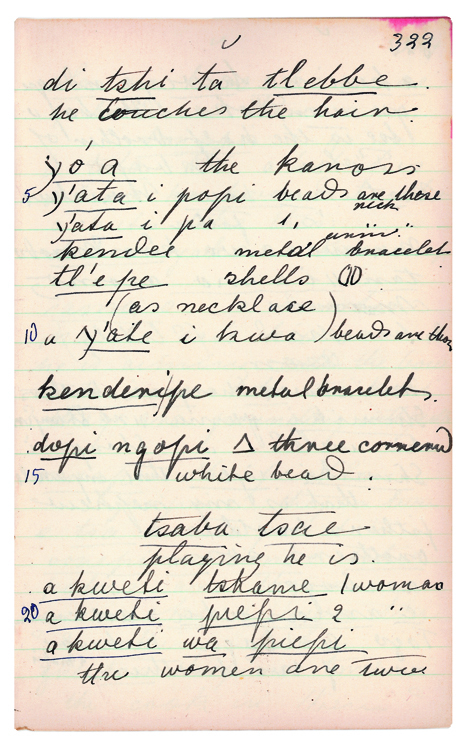 322
di tshi ta tlebbe.
he touches the hair.
yó a the kaross
5 y'ata i popi beads are those
neck
y'ata i pa " arm "
kendee metal bracelet
tl'e pe shells
(as necklace)
10 a y'ate i kwa beads are those
kenderipe metal bracelets.
dopi ngopi Δ three cornered
15 white bead.
tsaba tsae
playing he is.
a kweti tshame 1 woman
20 a kweti piepi 2 "
a kweti wa piepi
the women are twice